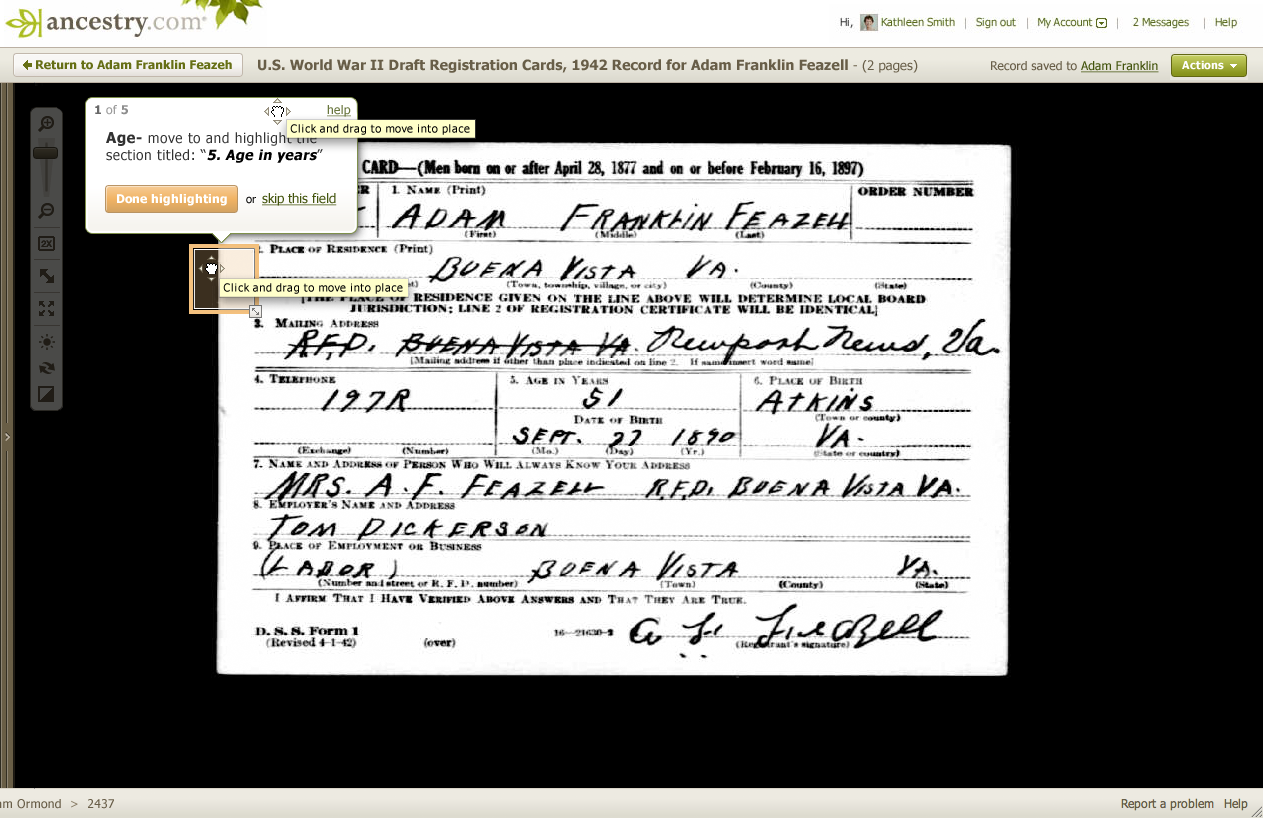 ancestry.com
Hi, Kathleen Smith | Sign out | My Account | 2 Messages | Help
Return to Adam Franklin Feazeh
U.S. World War II Draft Registration Cards, 1942 Record for Adam Franklin Feazell - (2 pages)
Record saved to Adam Franklin
Actions
1 of 5
help
Click and drag to move into place
Age- move to and highlight the
section titled: “5. Age in years”
Done highlighting or skip this field
2X
CARD—(Men born on or after April 28, 1877 and on or before February 16, 1897)
1. NAME (Print)
ORDER NUMBER
ADAM FRANKLIN FEAZELL
(First) (Middle) (Last)
PLACE OF RESIDENCE (Print)
BUENA VISTA VA.
Click and drag to move into place
(Town, township, village, or city) (County) (State)
[THE PLACE OF RESIDENCE GIVEN ON THE LINE ABOVE WILL DETERMINE LOCAL BOARD
JURISDICTION; LINE 2 OF REGISTRATION CERTIFICATE WILL BE IDENTICAL]
3. MAILING ADDRESS
R.F.D. BUENA VISTA VA. Newport News, Va.
[Mailing address if other than place indicated on line 2. If same insert word same]
4. TELEPHONE
5. AGE IN YEARS
6. PLACE OF BIRTH
197R
51
ATKINS
(Town or county)
DATE OF BIRTH
SEPT. 27 1890
VA.
(Exchange) (Number)
(Mo.) (Day) (Yr.)
(State or country)
7. NAME AND ADDRESS OF PERSON WHO WILL ALWAYS KNOW YOUR ADDRESS
MRS. A. F. FEAZELL R.F.D. BUENA VISTA VA.
8. EMPLOYER'S NAME AND ADDRESS
TOM DICKERSON
9. PLACE OF EMPLOYMENT OR BUSINESS
(LABOR) BUENA VISTA VA.
(Number and street or R. F. D. number) (Town) (County) (State)
I AFFIRM THAT I HAVE VERIFIED ABOVE ANSWERS AND THAT THEY ARE TRUE.
D. S. S. Form 1
(Revised 4-1-42) (over)
16—21630-2
(Registrant's signature)
am Ormond > 2437
Report a problem Help